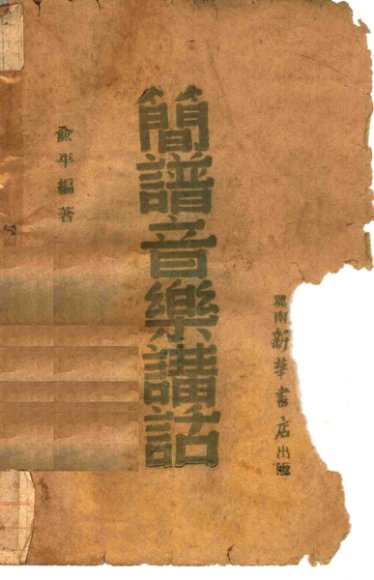 冀南新華書店出版
簡譜音樂講話
俞平編著